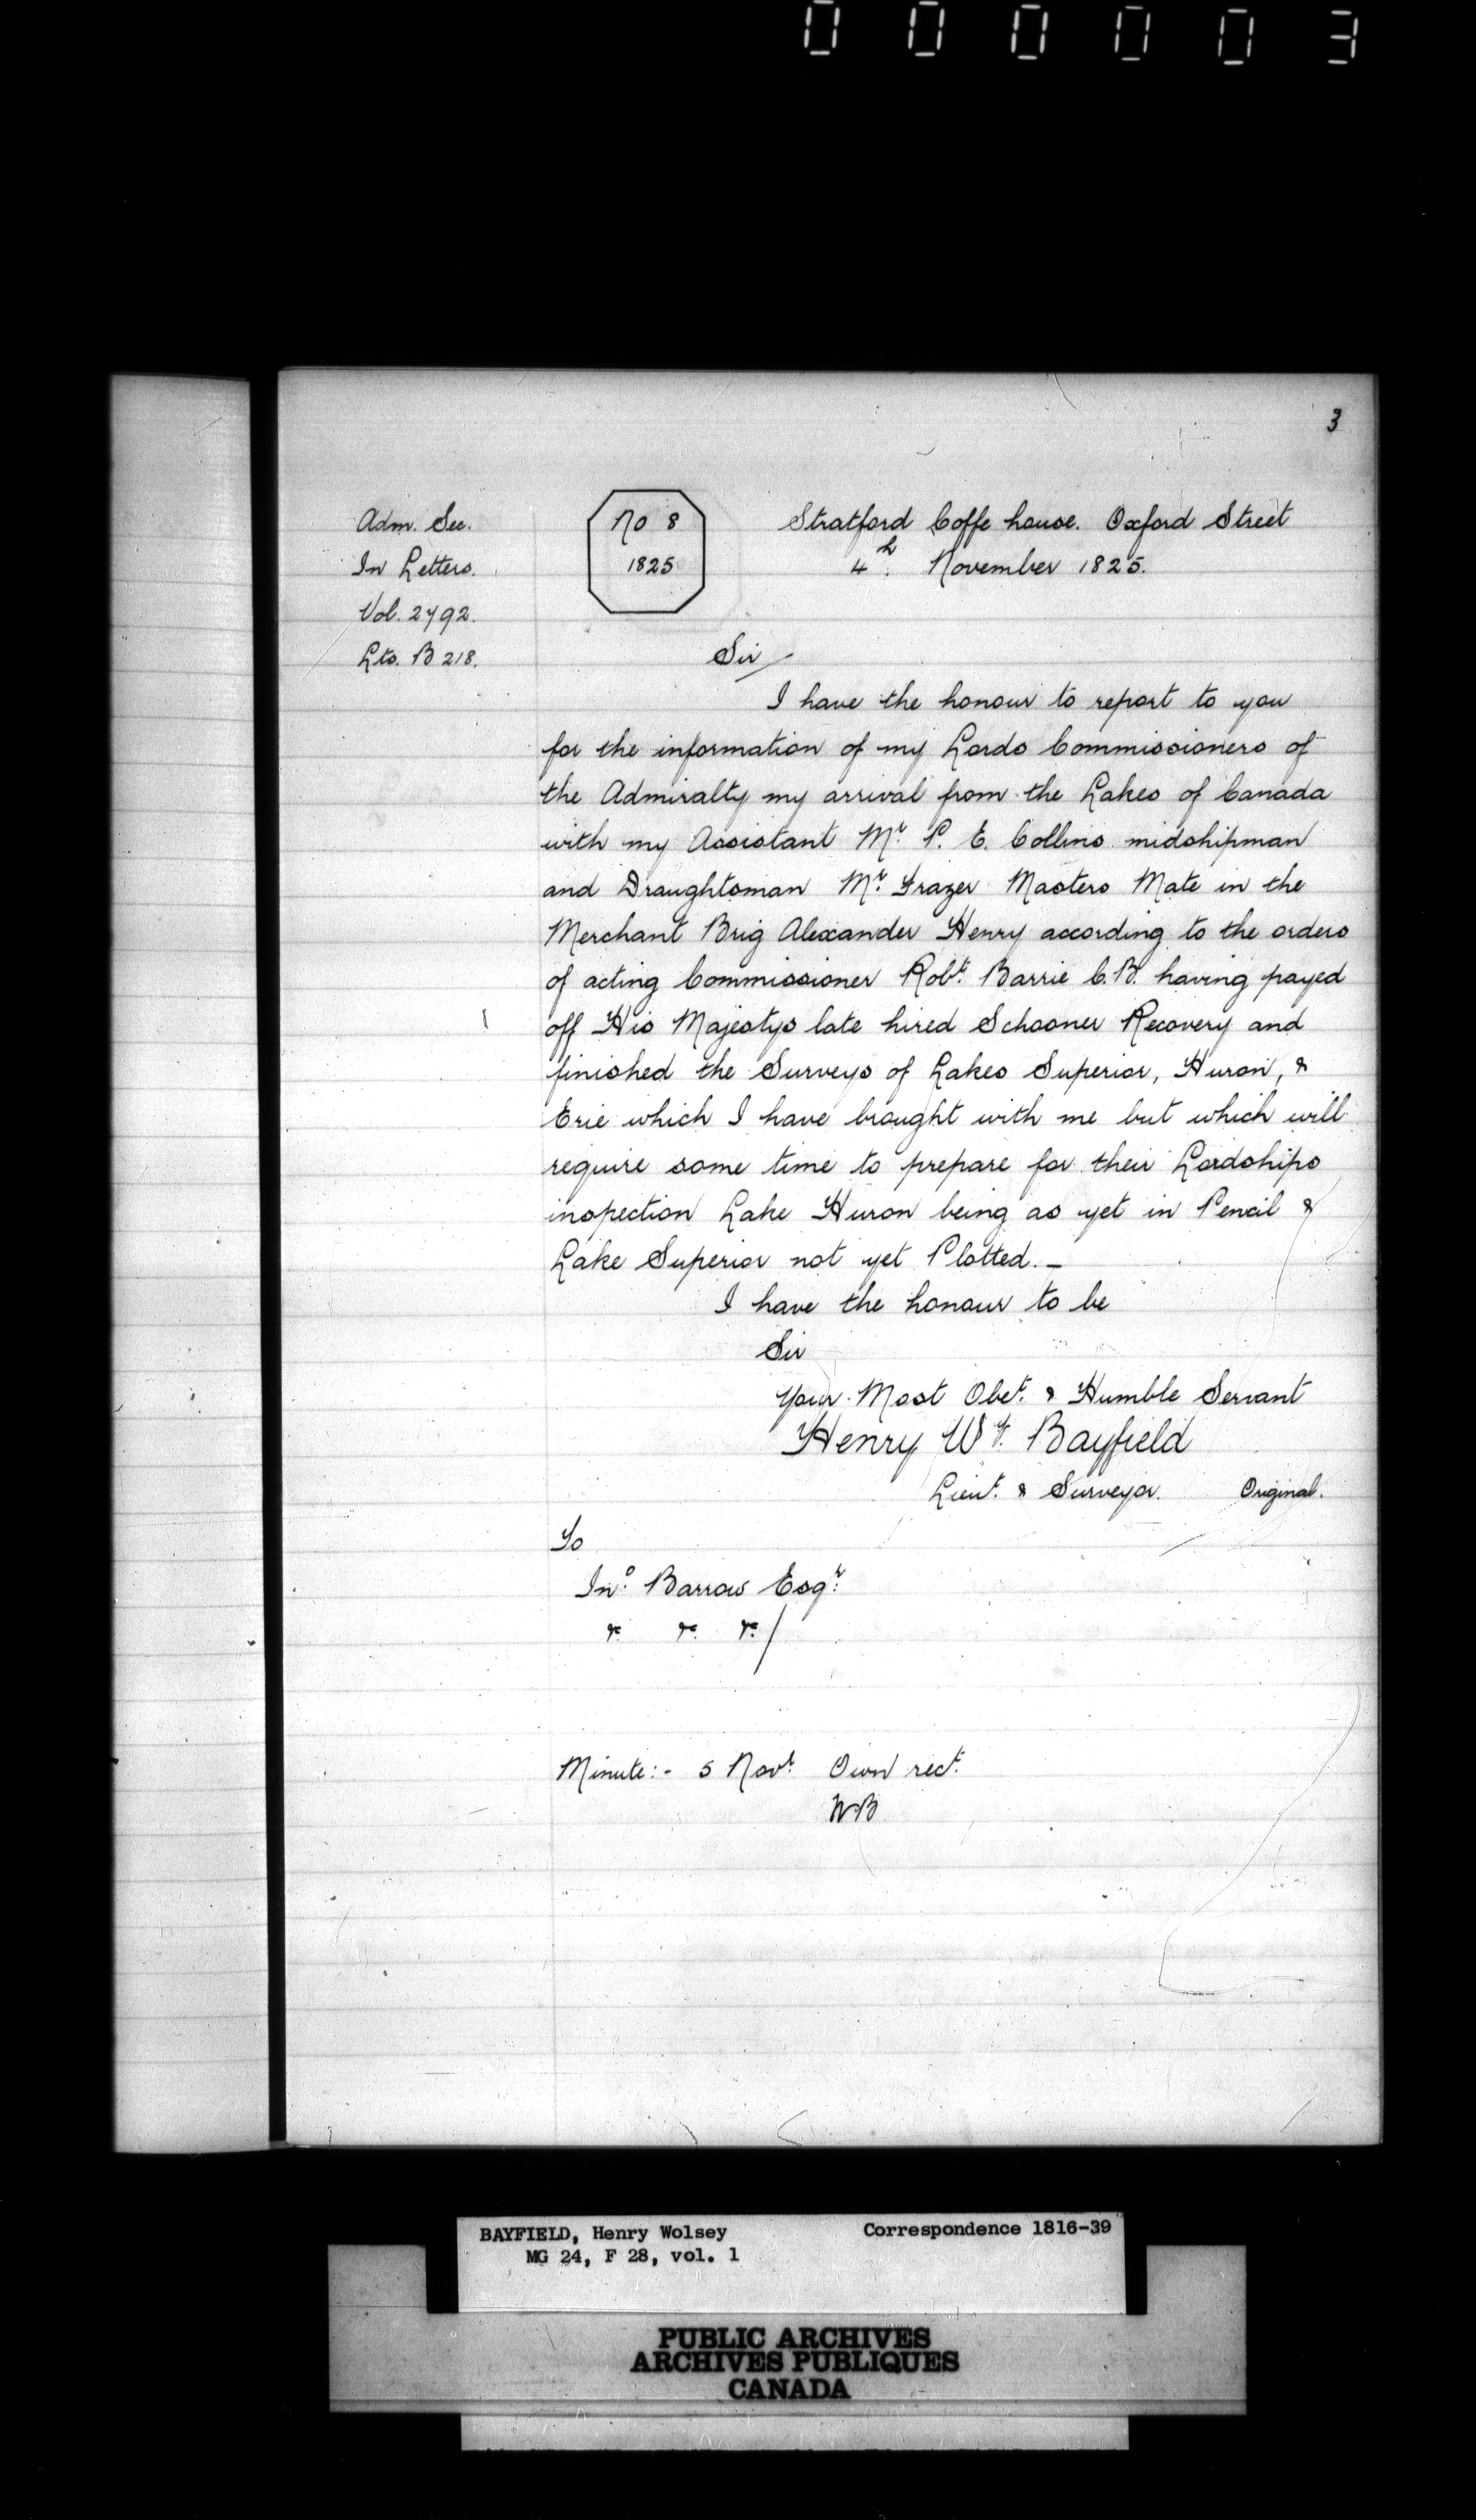 000003
3
Adm. Sec.
In Letters.
Vol. 2792.
Lts. B 218.
No 8
1825
Stratford Coffe house. Oxford Street
4th. November 1825.
Sir
I have the honour to report to you
for the information of my Lords Commissioners of
the Admiralty my arrival from the Lakes of Canada
with my Assistant Mr. P. E. Collins midshipman
and Draughtsman Mr. Frazer Masters Mate in the
Merchant Brig Alexander Henry according to the orders
of acting Commissioner Robt. Barrie C.B. having payed
off His Majestys late hired Schooner Recovery and
finished the Surveys of Lakes Superior, Huron, &
Erie which I have brought with me but which will
require some time to prepare for their Lordships
inspection Lake Huron being as yet in Pencil &
Lake Superior not yet Plotted. _
I have the honour to be
Sir
Your Most Obet. & Humble Servant
Henry Wy. Bayfield
Lieut. & Surveyor. Original.
To
Jno. Barrow Esqr.
&c. &c. &c./
Minute:- 5 Novr. Own rect.
WB
BAYFIELD, Henry Wolsey Correspondence 1816-39
MG 24, F 28, vol. 1
PUBLIC ARCHIVES
ARCHIVES PUBLIQUES
CANADA